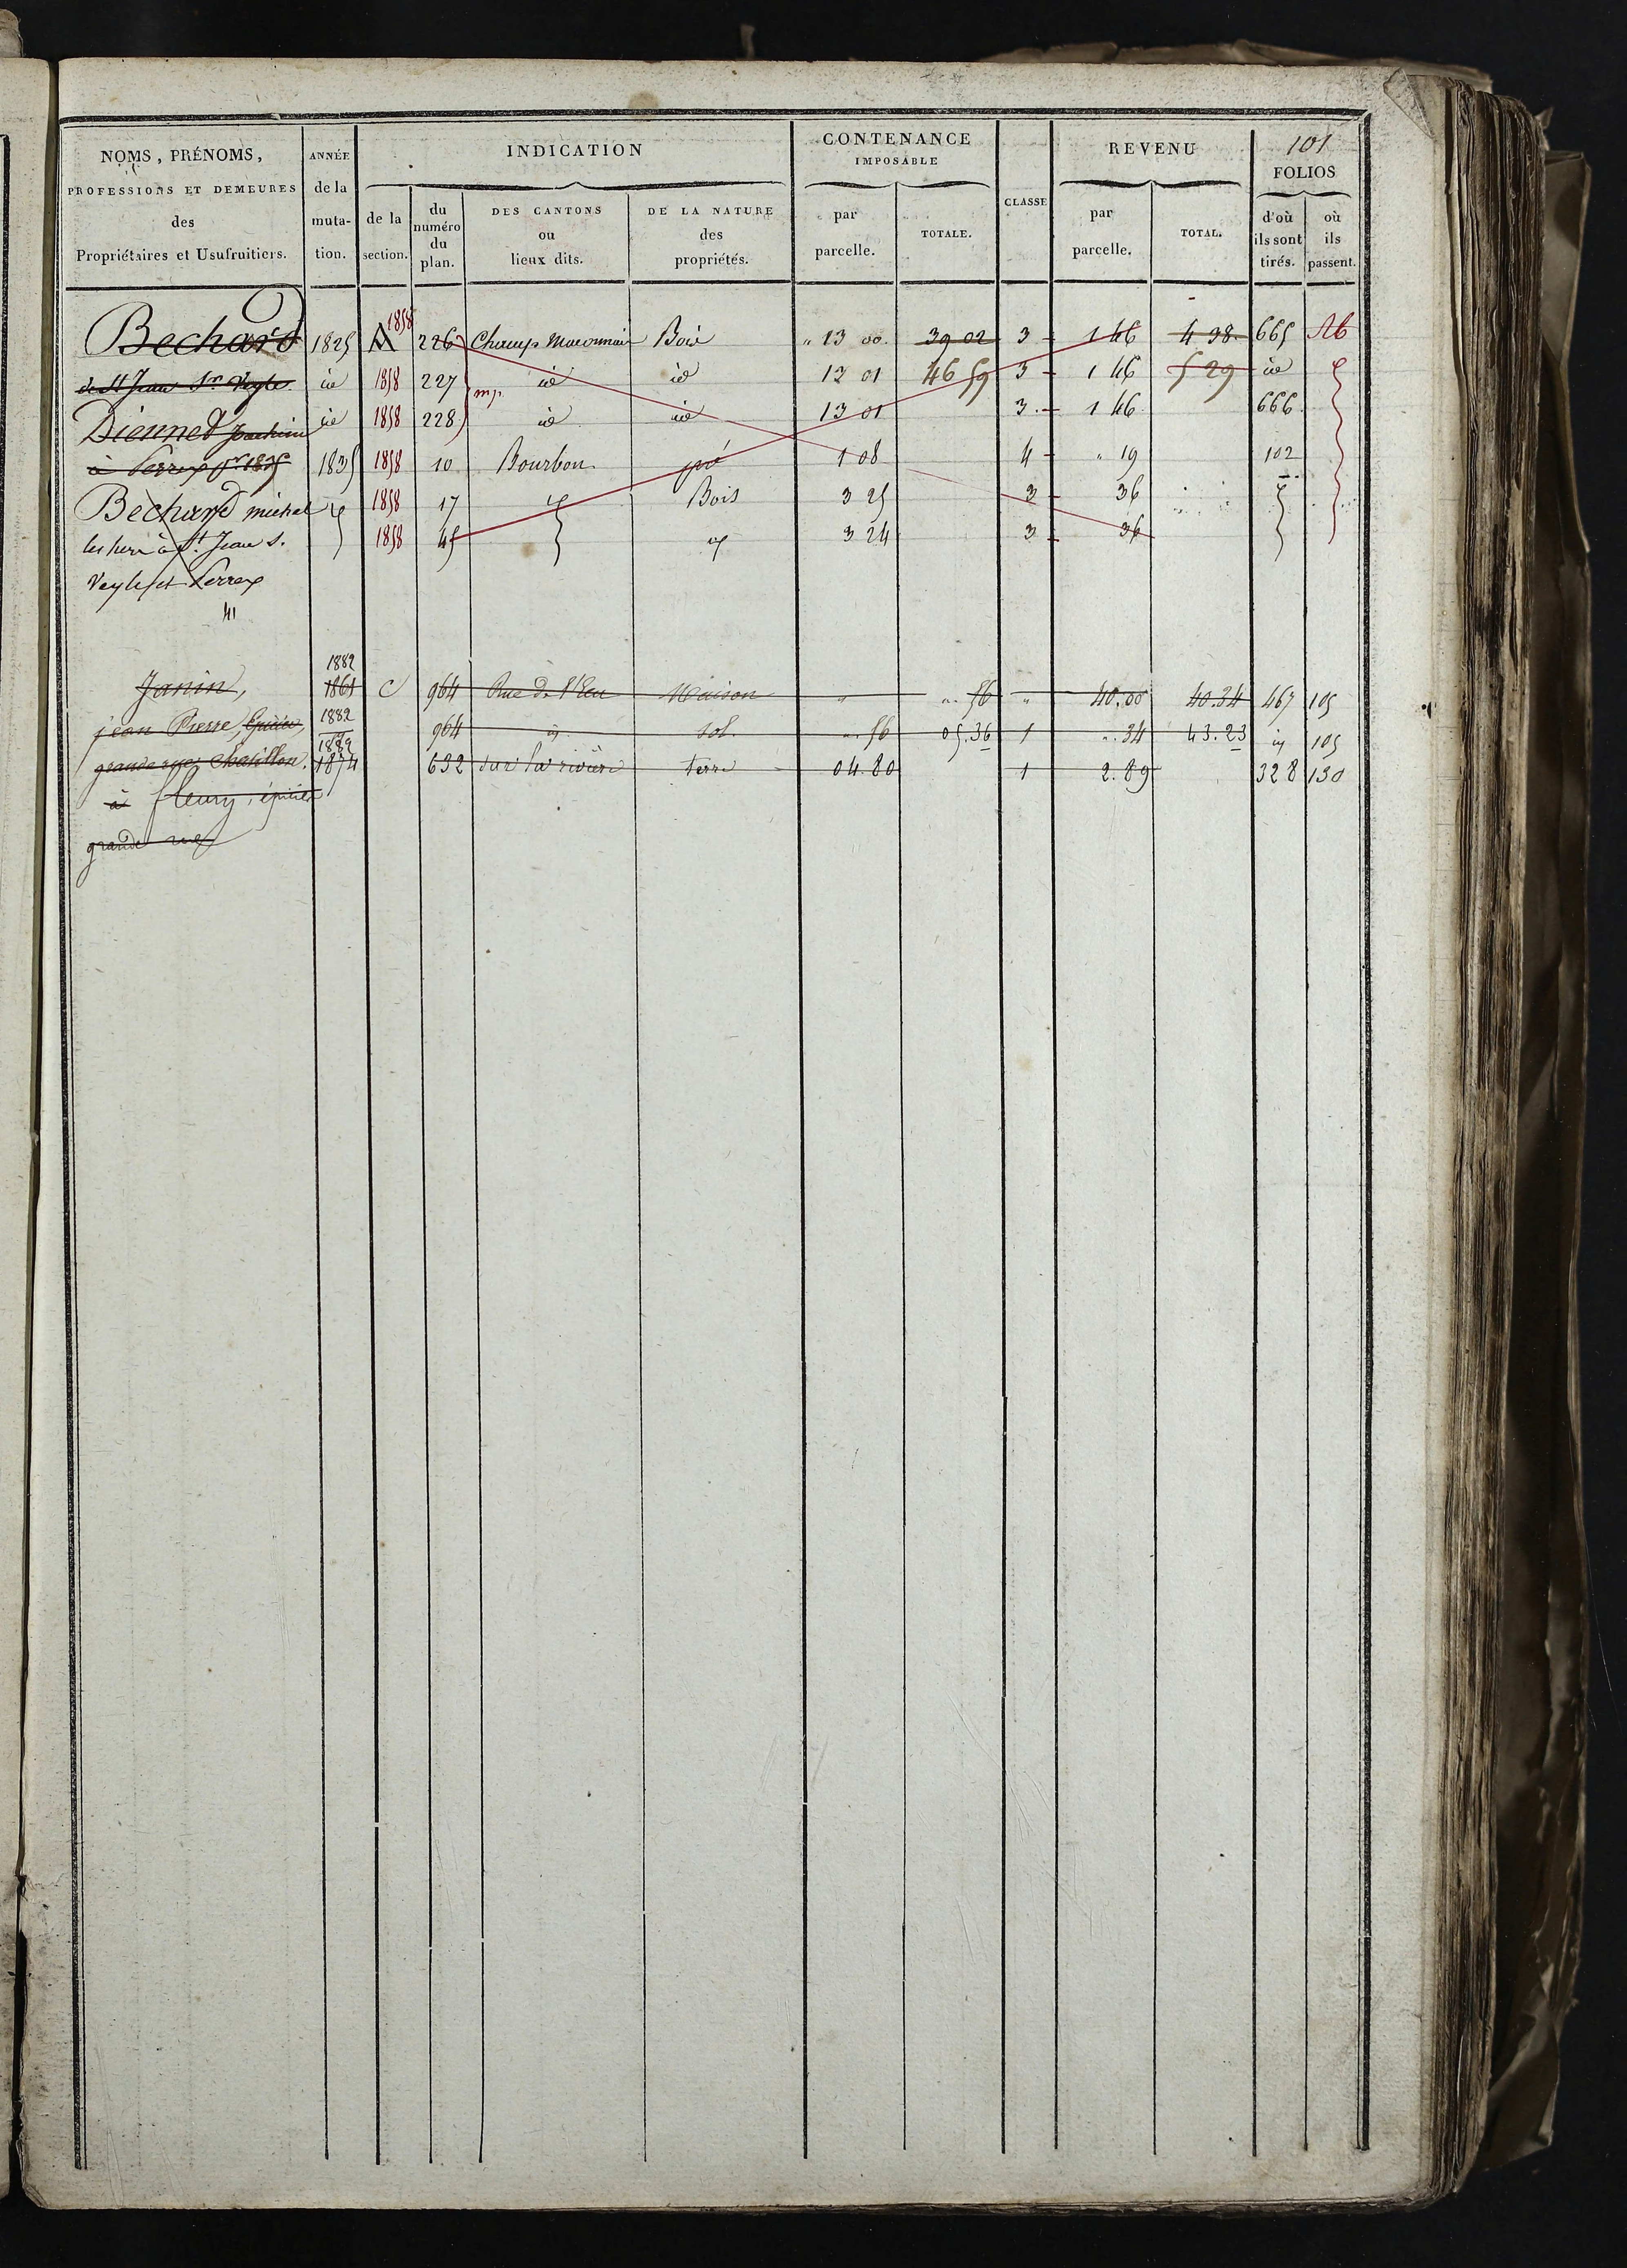 101
NOMS, PRÉNOMS, PROFESSIONS ET DEMEURES des Propriétaires et Usufruitiers. | ANNÉE de la muta-tion. | INDICATION | CONTENANCE IMPOSABLE | CLASSE | REVENU | FOLIOS
de la section. | du numéro du plan. | DES CANTONS ou lieux dits. | DE LA NATURE des propriétés. | par parcelle. | TOTALE. | par parcelle. | TOTAL. | d'où ils sont tirés. | où ils passent.
Bechard 1825 A 1858 226 Champ Maconnais Bois " 13 00 39 02 3 1 46 4 38 665
de St Jean Sr Veyle id 1858 227 id id 13 01 46 59 3 1 46 5 29 id
Diennet Joachim id 1858 228 id id 13 01 3 1 46 666
à Perrex pr 1835 1835 1858 10 Bourbon pré 1 08 4 " 19 102
Bechard michel 1858 17 Bois 3 25 3 36
les hers à St Jean S. 1858 45 3 24 3 36
Veyle et Perrex
Janin, 1882 1861 C 964 Rue de l'Eau Maison " ". 56 " 40.00 40.34 467 105
jean Pierre, Epicier, 1882 964 id sol. ". 56 05.36 1 ". 34 43.23 id 105
grande rue, Chatillon. 1882 1874 632 sur la rivière terre 04.80 1 2.89 328 130
à fleury, épicier
grande rue